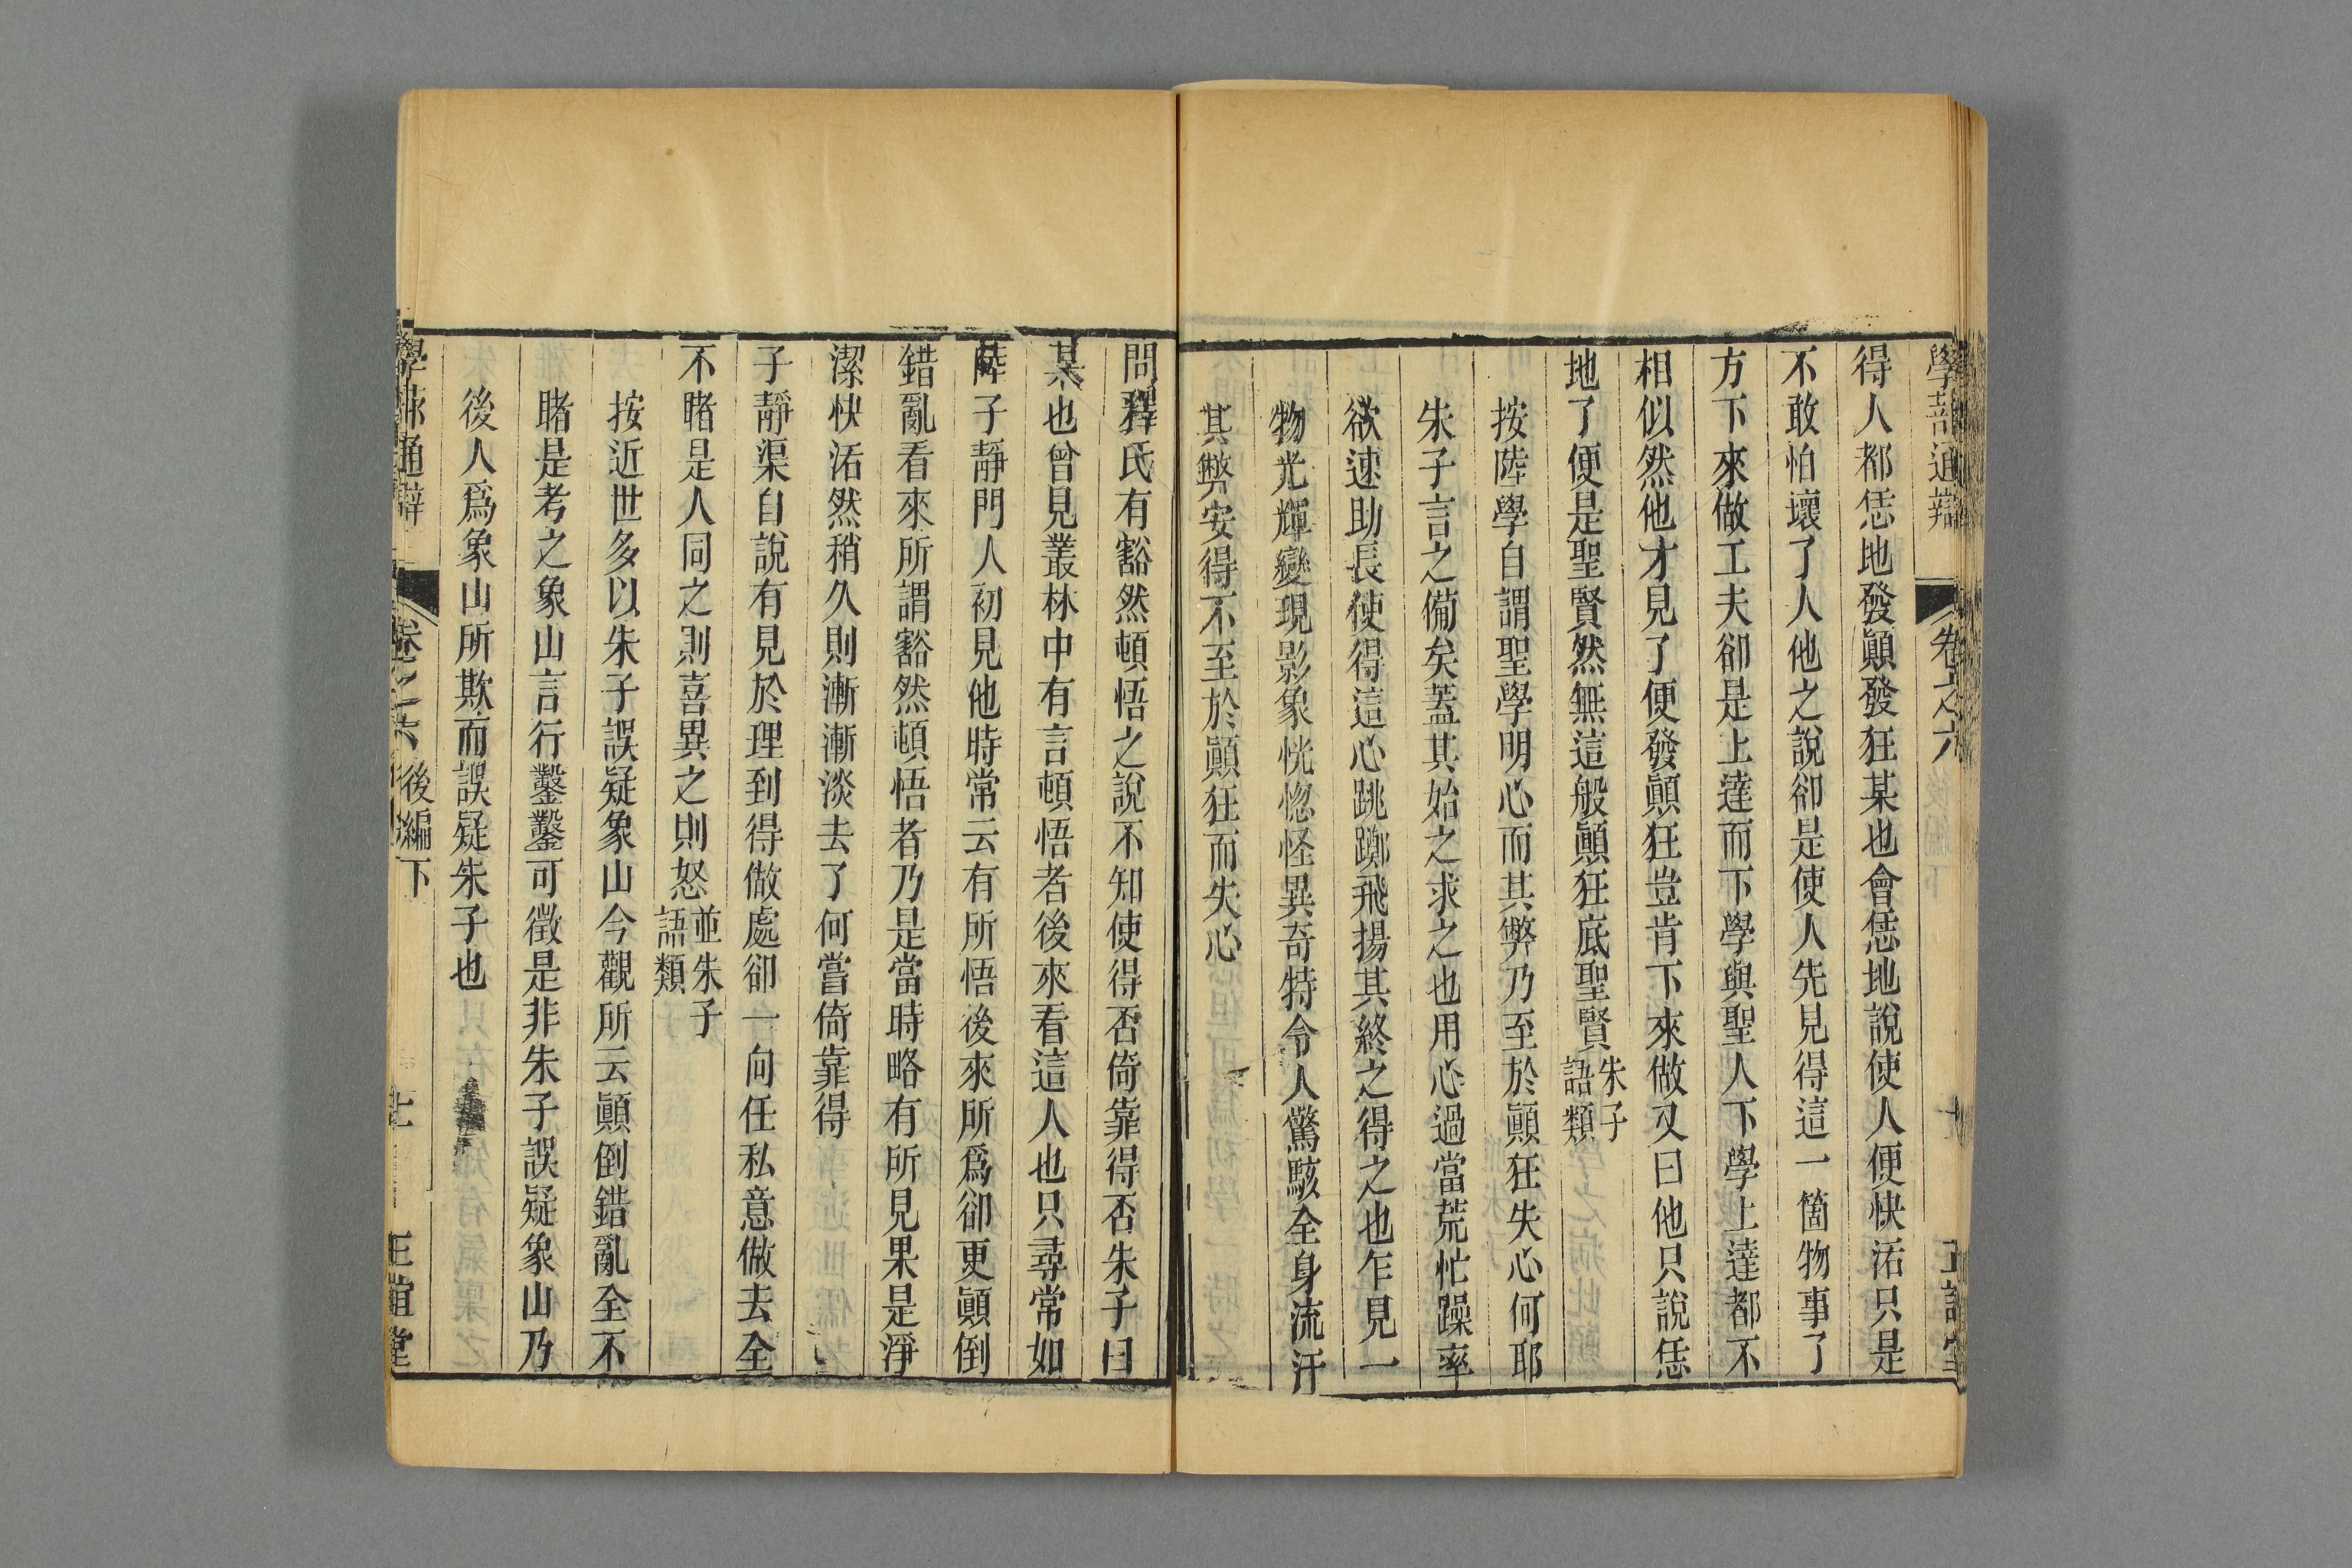 學蔀通辯
卷之六
得人都恁地發顚發狂某也會恁地說使人便快活只是
不敢怕壞了人他之說卻是使人先見得這一箇物事了
方下來做工夫卻是上達而下學與聖人下學上達都不
相似然他才見了便發顚狂豈肯下來做又曰他只說恁
地了便是聖賢然無這般顚狂底聖賢
朱子
語類
按陸學自謂聖學明心而其弊乃至於顚狂失心何耶
朱子言之備矣蓋其始之求之也用心過當荒忙躁率
欲速助長使得這心跳躑飛揚其終之得之也乍見一
物光輝變現影象恍惚怪異奇特令人驚駭全身流汗
其弊安得不至於顚狂而失心
問釋氏有豁然頓悟之說不知使得否倚靠得否朱子曰
某也曾見叢林中有言頓悟者後來看這人也只尋常如
陸子靜門人初見他時常云有所悟後來所爲卻更顚倒
錯亂看來所謂豁然頓悟者乃是當時略有所見果是淨
潔快活然稍久則漸漸淡去了何嘗倚靠得
子靜渠自說有見於理到得做處卻一向任私意做去全
不睹是人同之則喜異之則怒
並朱子
語類
按近世多以朱子誤疑象山今觀所云顚倒錯亂全不
睹是考之象山言行鑿鑿可徵是非朱子誤疑象山乃
後人爲象山所欺而誤疑朱子也
學蔀通辯
卷之六
後編下
七
正誼堂